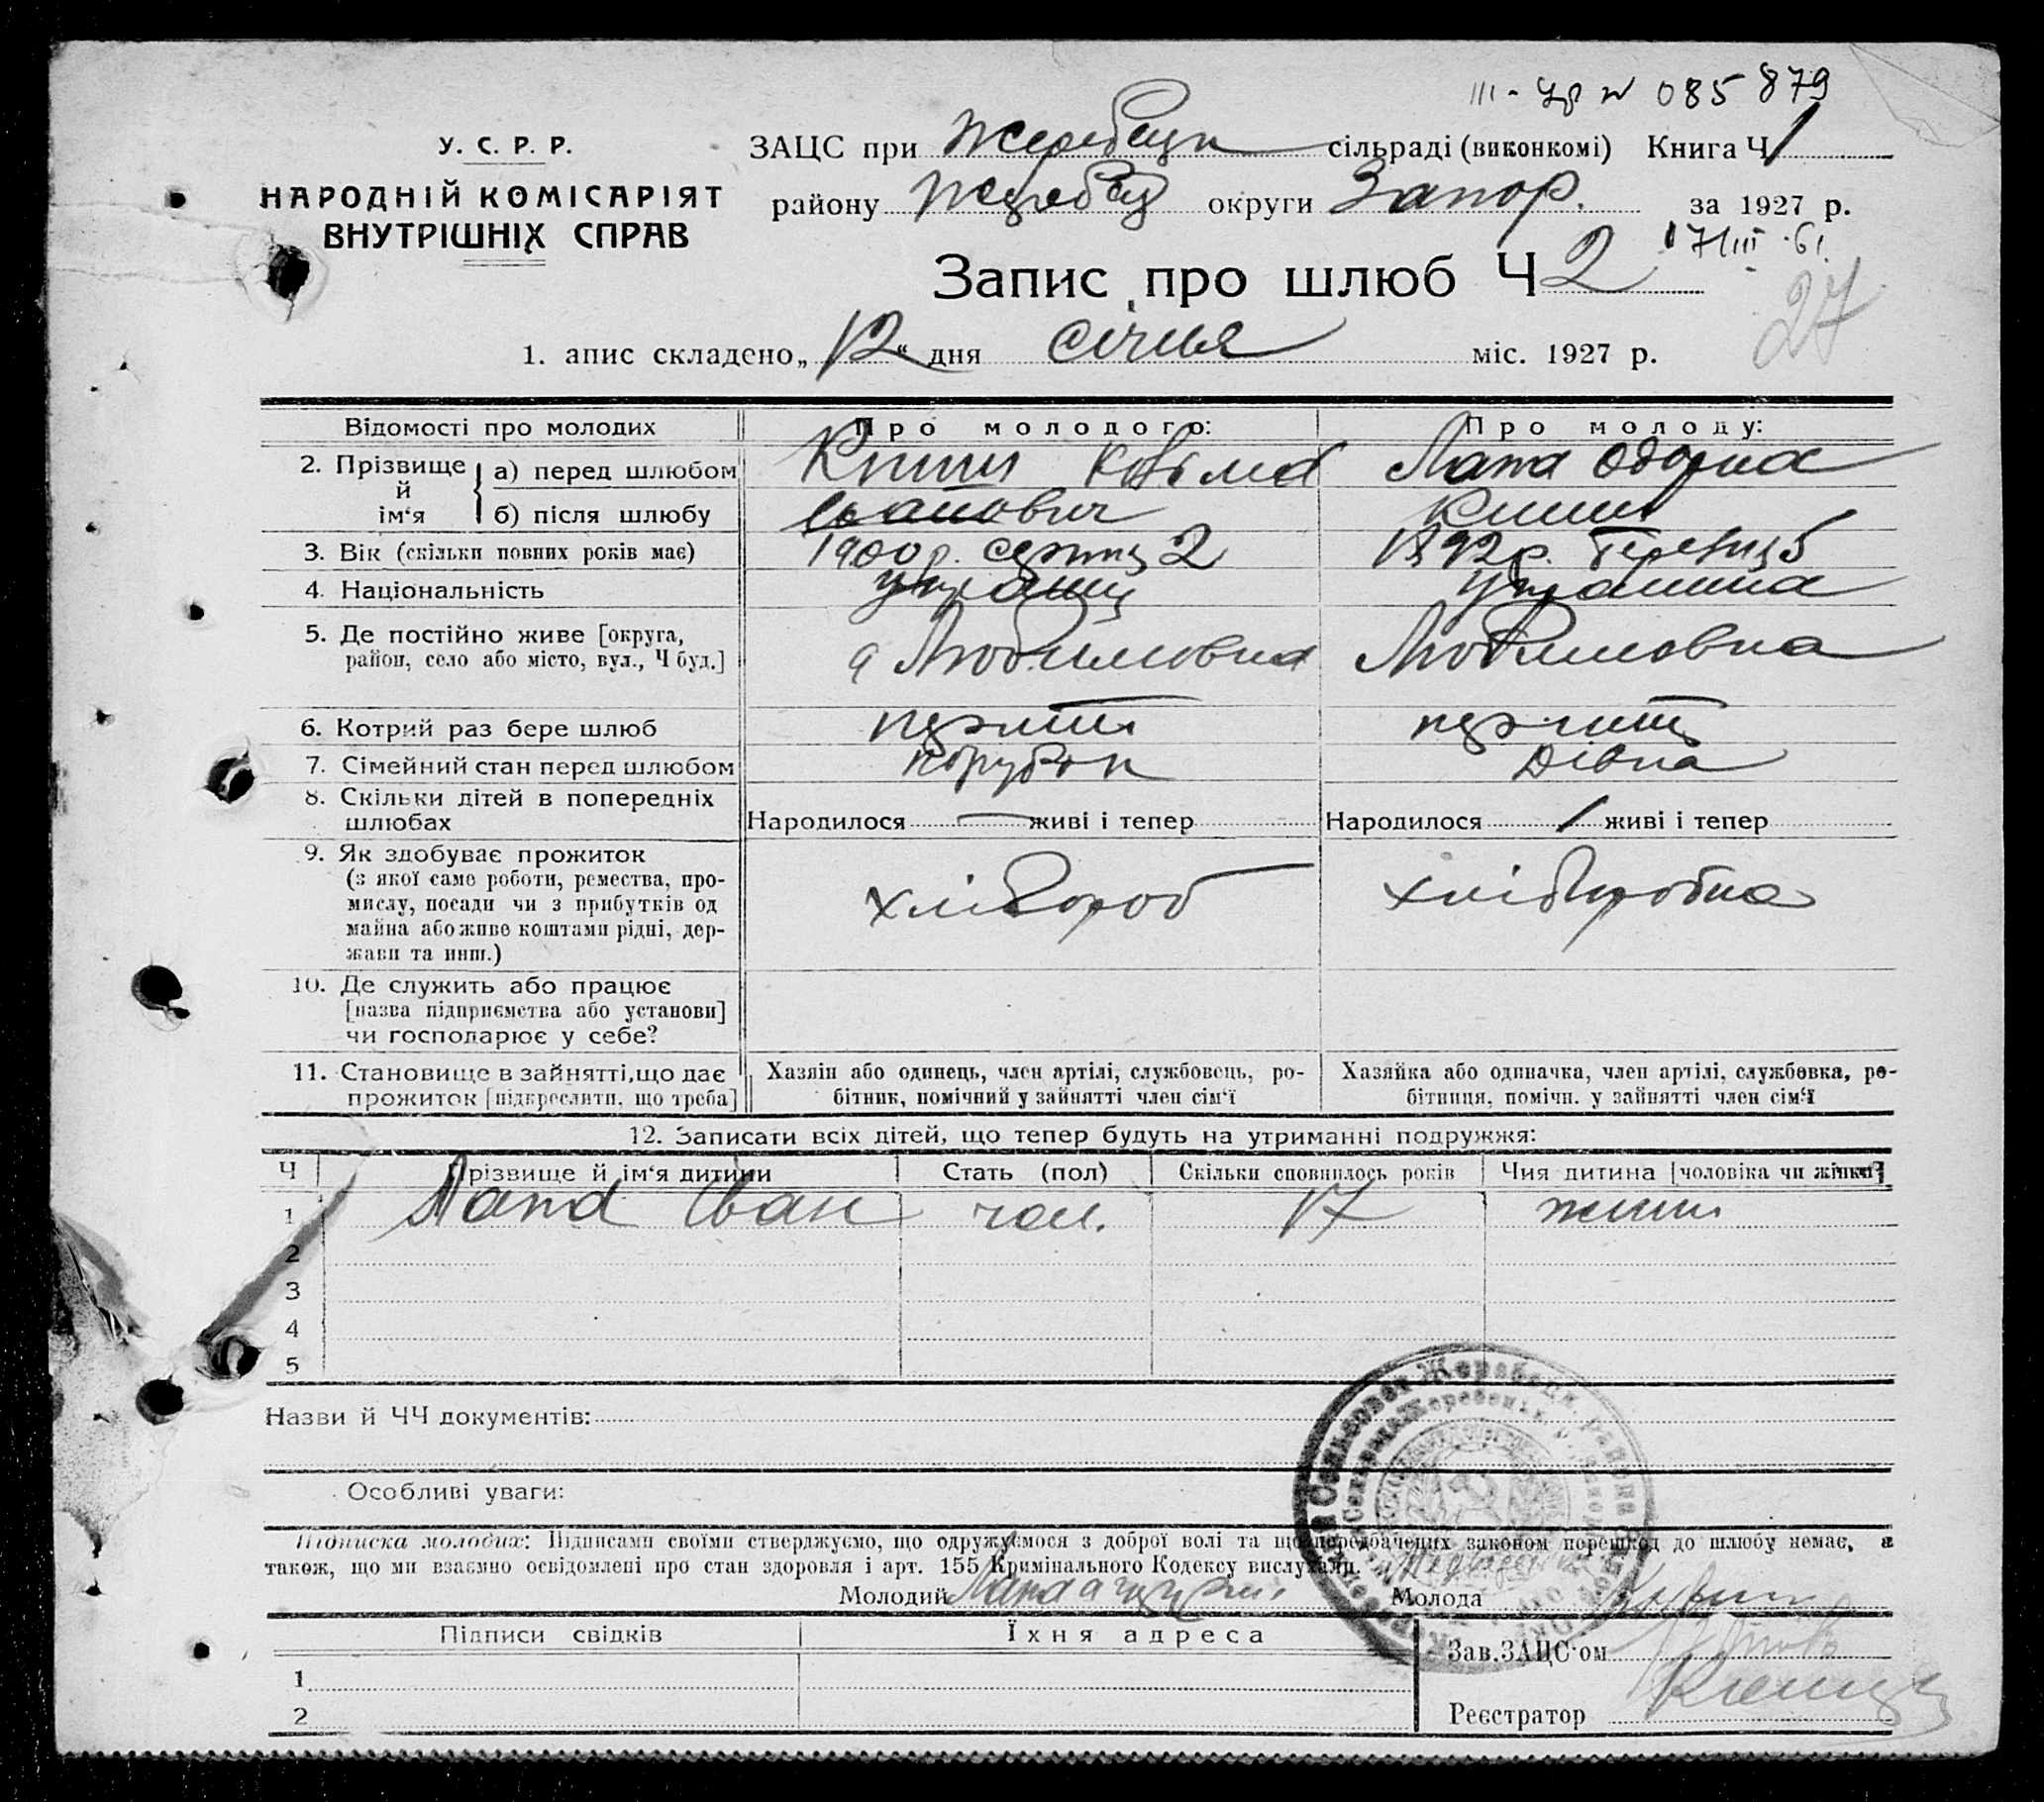 III - ЧР № 085879
У. С. Р. Р.
НАРОДНІЙ КОМІСАРІЯТ
ВНУТРІШНІХ СПРАВ
ЗАЦС при Жеребецк сільраді (виконкомі) Книга Ч 1
району Жеребец округи Запор. за 1927 р.
17/III-61.
Запис про шлюб Ч 2
27
1. апис складено „12“ дня січня міс. 1927 р.
Відомості про молодих Про молодого: Про молоду:
2. Прізвище й ім‘я
а) перед шлюбом Козьма Лапа Одарка
б) після шлюбу
3. Вік (скільки повних років має) 1900 р. серпня 2 1892 р. березня 5
4. Національність українець українка
5. Де постійно живе [округа, Любимовка Любимовка
район, село або місто, вул., Ч буд.]
6. Котрий раз бере шлюб перший перший
7. Сімейний стан перед шлюбом парубок дівка
8. Скільки дітей в попередніх
шлюбах Народилося — живі і тепер Народилося / живі і тепер
9. Як здобуває прожиток
(з якої саме роботи, ремества, про-
мислу, посади чи з прибутків од хлібороб хліборобка
майна або живе коштами рідні, дер-
жави та инш.)
10. Де служить або працює
[назва підприємства або установи]
чи господарює у себе?
11. Становище в зайнятті, що дає Хазяїн або одинець, член артілі, службовець, ро- Хазяйка або одиначка, член артілі, службовка, ро-
прожиток [підкреслити, що треба] бітник, помічний у зайнятті член сім‘ї бітниця, помічн. у зайнятті член сім‘ї
12. Записати всіх дітей, що тепер будуть на утриманні подружжя:
Ч Прізвище й ім‘я дитини Стать (пол) Скільки сповнилось років Чия дитина [чоловіка чи жінки?]
1 Лапа Іван чол. 17 жінки
2
3
4
5
Назви й ЧЧ документів:
Особливі уваги:
Підписка молодих: Підписами своїми стверджуємо, що одружуємося з доброї волі та що передбачених законом перешкод до шлюбу немає, а
також, що ми взаємно освідомлені про стан здоровля і арт. 155 Кримінального Кодексу вислухали.
Молодий Молода
Підписи свідків Їхня адреса Зав. ЗАЦС‘ом
1
2 Реєстратор